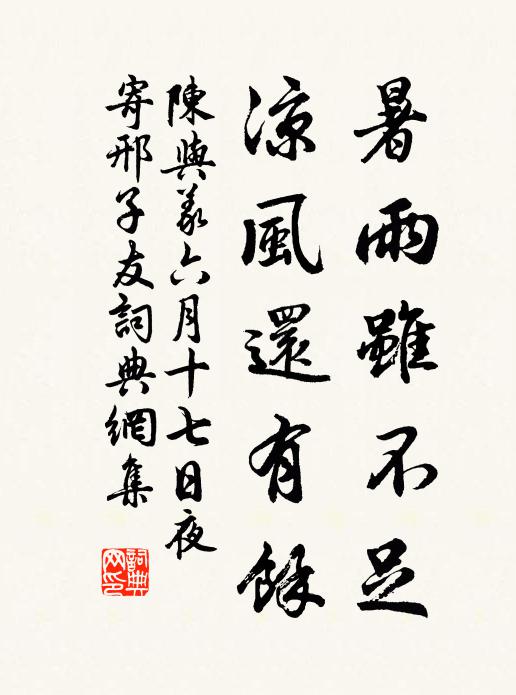 暑雨雖不足
涼風還有餘
陳與義六月十七日夜
寄邢子友詞典網集
詞典
网印